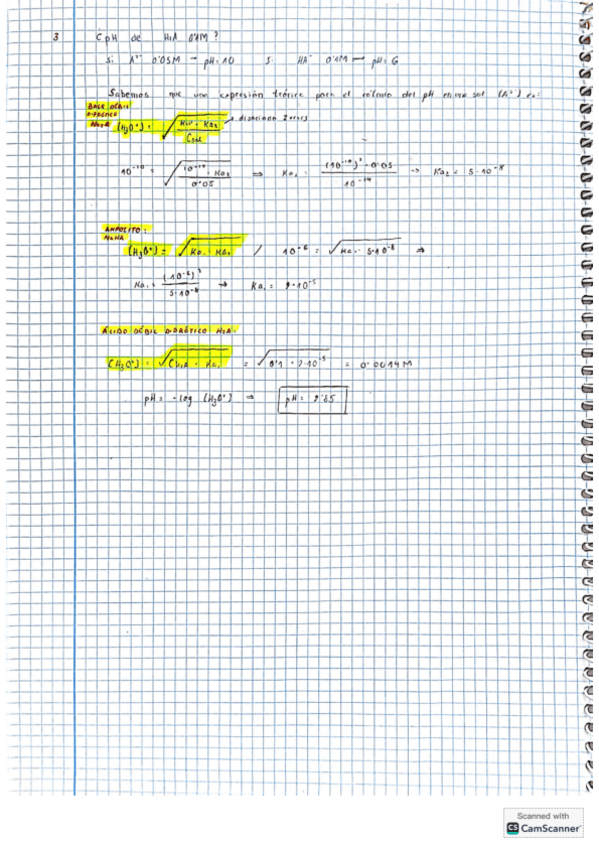 3 ¿pH de H₂A 0'1M?
Si A²⁻ 0'05M → pH=10 Si HA⁻ 0'1M → pH=6
Sabemos que una expresión teórica para el cálculo del pH en una sal (A²⁻) es:
BASE DÉBIL
DIPRÓTICA
Na₂A (H₃O⁺) = √(Kw · Ka₂ / Csal)
10⁻¹⁰ = √(10⁻¹⁴ · Ka₂ / 0'05) ⇒ Ka₂ = (10⁻¹⁰)² · 0'05 / 10⁻¹⁴ → Ka₂ = 5·10⁻⁸
ANFOLITO:
NaHA
(H₃O⁺) = √(Ka₁ · Ka₂) / 10⁻⁶ = √(Ka₁ · 5·10⁻⁸) ⇒
Ka₁ = (10⁻⁶)² / 5·10⁻⁸ → Ka₁ = 2·10⁻⁵
ÁCIDO DÉBIL DIPRÓTICO H₂A:
(H₃O⁺) = √(CH₂A · Ka₁) = √(0'1 · 2·10⁻⁵) = 0'0014M
pH = -log (H₃O⁺) ⇒ pH = 2'85
Scanned with
CS CamScanner